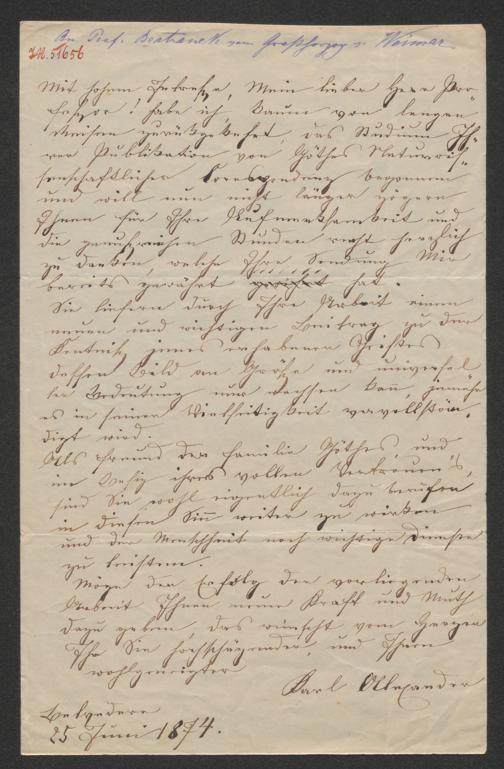 An Prof. Bratranek vom Großherzog v. Weimar
I.N. 51656
Mit hohem Interesse, mein lieber Herr Pro-
fessor! habe ich, kaum von langen
Reisen zurückgekehrt, das Studium Ih-
rer Publikation von Göthes Naturwis-
senschaftlicher Correspondenz begonnen
und will nun nicht länger zögern
Ihnen für Ihre Aufmerksamkeit und
die genußreichen Stunden recht herzlich
zu danken, welche Ihre Sendung Mir
bereits gewährt hat.
Sie liefern durch Ihre Arbeit einen
neuen und wichtigen Beitrag zu der
Kentniß jenes erhabenen Geistes
dessen Bild an Größe und universel-
ler Bedeutung nur wachsen kann, jemehr
es in seiner Vielseitigkeit vervollstän-
digt wird.
Als Freund der Familie Göthes, und
im Besitz ihres vollen Vertrauens,
sind Sie wohl eigentlich dazu berufen
in diesem Sinn weiter zu wirken
und der Menschheit noch wichtige Dienste
zu leisten.
Möge der Erfolg der vorliegenden
Arbeit Ihnen neue Kraft und Muth
dazu geben, das wünscht vom Herzen
Ihr Sie hochschätzender, und Ihnen
wohlgeneigter
Karl Alexander
Belvedere
25 Juni 1874.